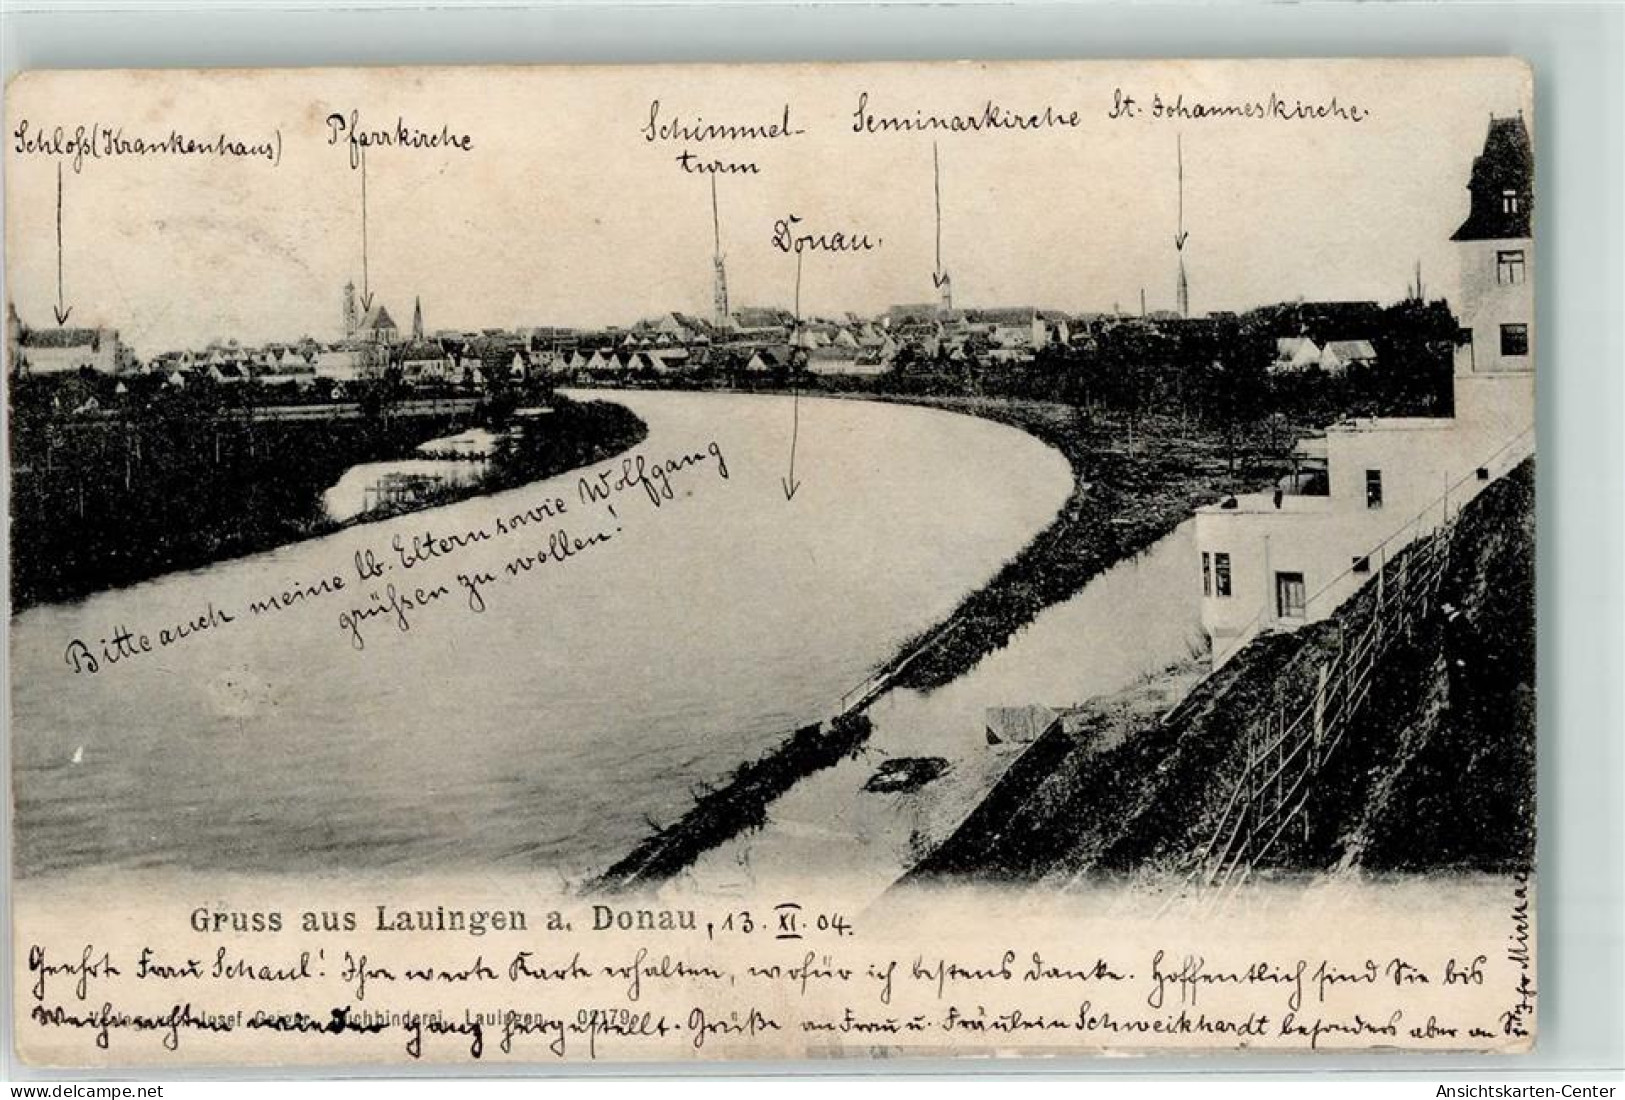 Schloſs (Krankenhaus)
Pfarrkirche
Schimmel-
turm
Seminarkirche
St. Johanneskirche.
Donau.
Bitte auch meine lb. Eltern sowie Wolfgang
grüſsen zu wollen!
Gruss aus Lauingen a. Donau, 13. XI. 04.
Geehrte Frau Schaul! Ihre werte Karte erhalten, wofür ich bestens danke. Hoffentlich sind Sie bis
Weihnachten wieder ganz hergestellt. Grüße an Frau u. Fräulein Schweikhardt besonders aber an Sie
Verlag von Josef Geiger, Buchbinderei, Lauingen. 02179
Ihr Michael
delcampe.net
Ansichtskarten-Center